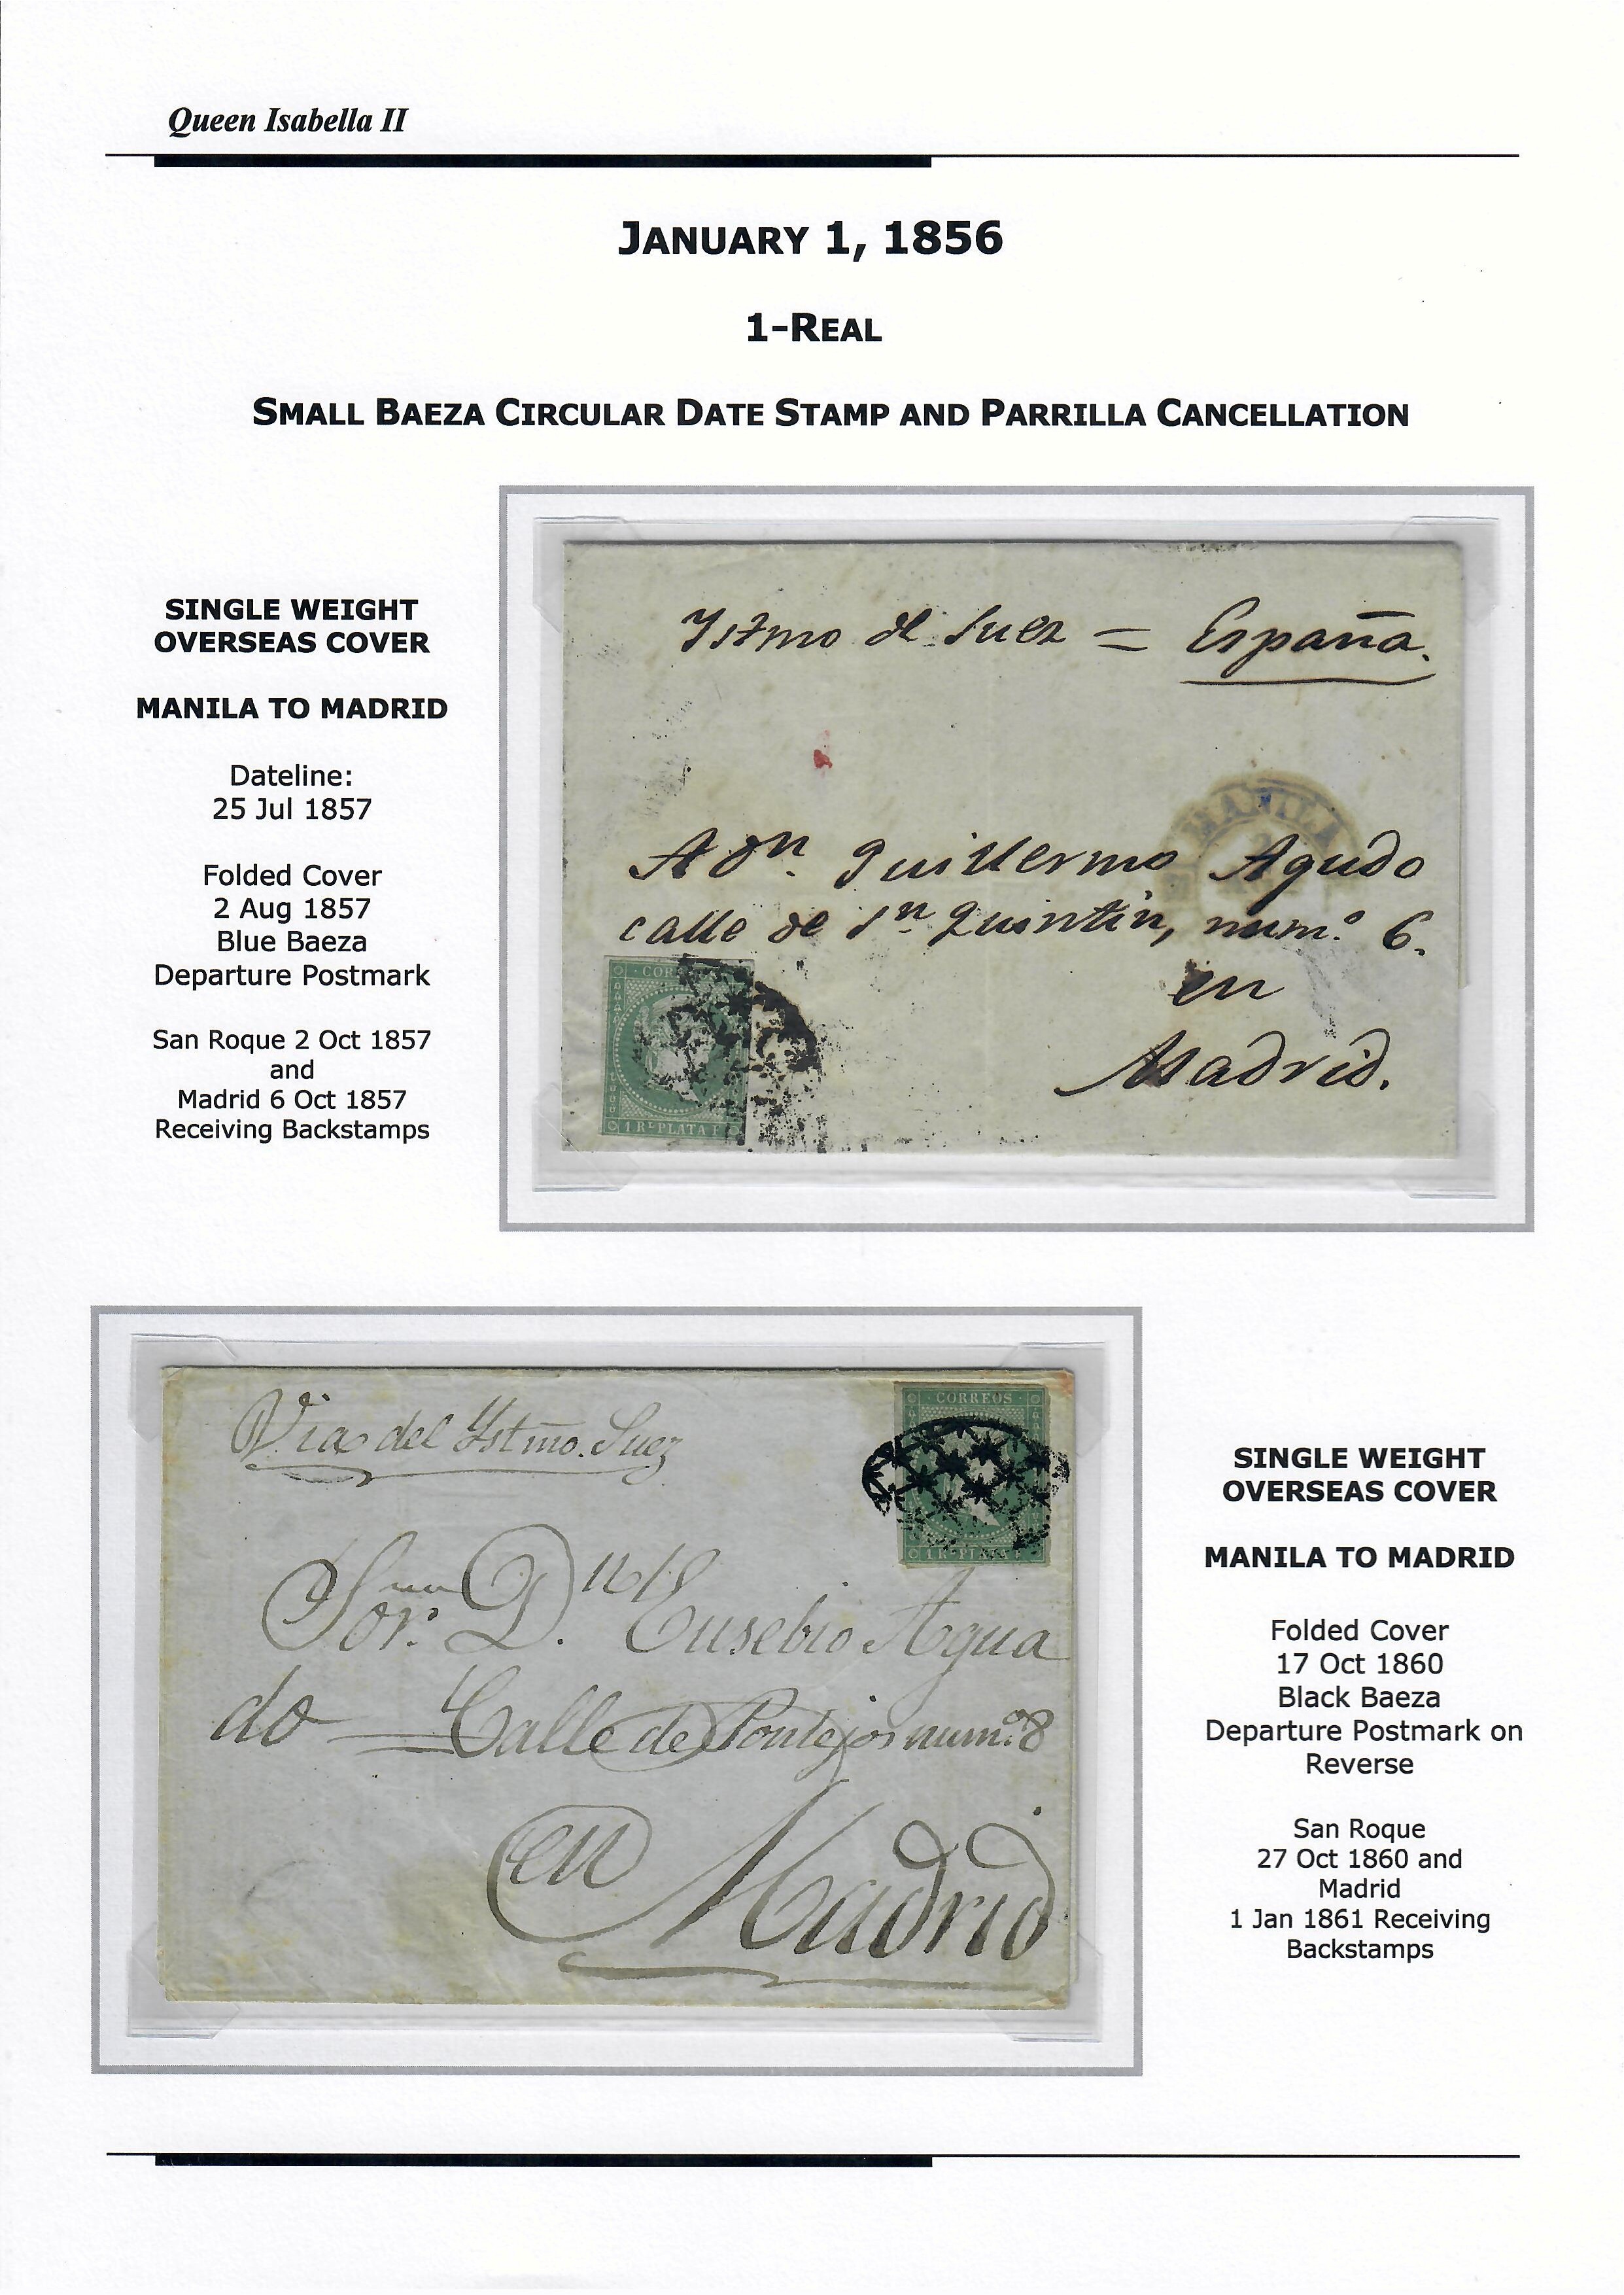 Queen Isabella II
JANUARY 1, 1856
1-REAL
SMALL BAEZA CIRCULAR DATE STAMP AND PARRILLA CANCELLATION
SINGLE WEIGHT
OVERSEAS COVER
MANILA TO MADRID
Dateline:
25 Jul 1857
Folded Cover
2 Aug 1857
Blue Baeza
Departure Postmark
San Roque 2 Oct 1857
and
Madrid 6 Oct 1857
Receiving Backstamps
Istmo de Suez = España.
MANILA
A Dn. Guillermo Agudo
calle de Sn Quintin, num.o 6.
en
Madrid.
COR
1 RL PLATA F
Via del Ystmo. Suez
CORREOS
1 R PLATA F
Sor. D. Eusebio Agua
do Calle de Pontejos num.o 8
en Madrid
SINGLE WEIGHT
OVERSEAS COVER
MANILA TO MADRID
Folded Cover
17 Oct 1860
Black Baeza
Departure Postmark on
Reverse
San Roque
27 Oct 1860 and
Madrid
1 Jan 1861 Receiving
Backstamps